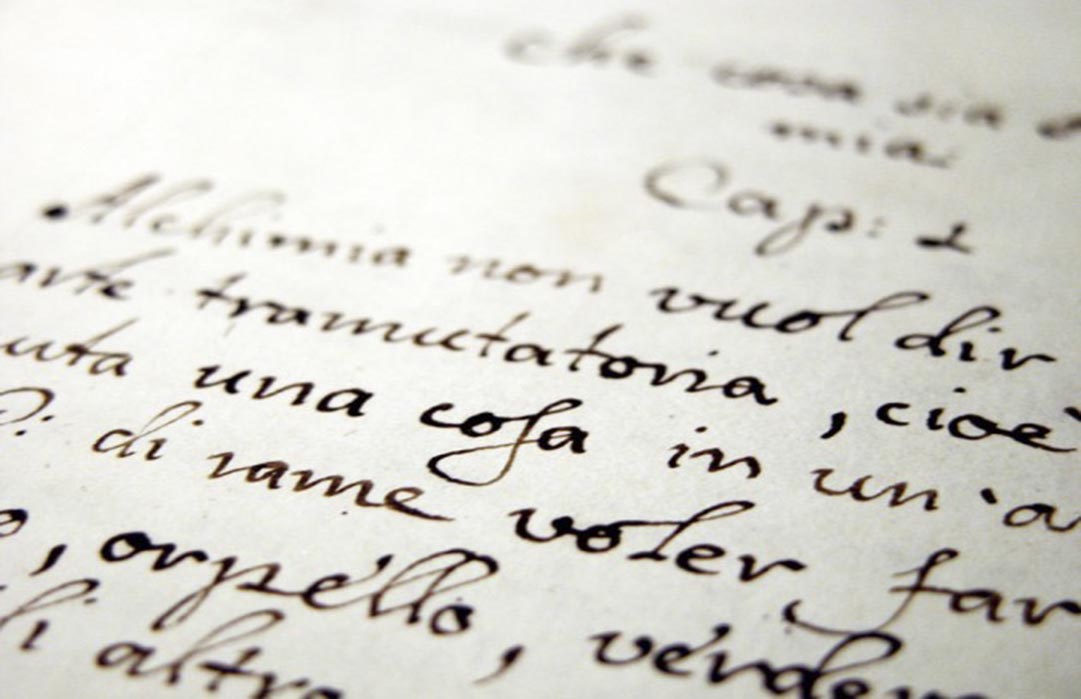 che cosa sia
mia.
Cap: 1
Alchimia non vuol dir
arte tramutatoria, cioè
uta una cosa in un'a
di rame voler far
, orpello, vender
altra